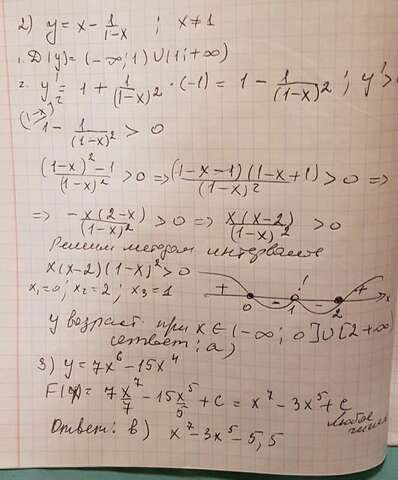 2) y = x - 1/(1-x) ; x ≠ 1
1. D(y) = (-∞; 1) ∪ (1; +∞)
2. y' = 1 + 1/(1-x)² · (-1) = 1 - 1/(1-x)² ; y' >
1 - 1/(1-x)² > 0
((1-x)² - 1)/(1-x)² > 0 => ((1-x-1)(1-x+1))/(1-x)² > 0 =>
=> -x(2-x)/(1-x)² > 0 => x(x-2)/(1-x)² > 0
Решим методом интервалов
x(x-2)(1-x)² > 0
x₁=0; x₂=2; x₃=1
+ 0 - 1 - 2 + x
y возраст. при x ∈ (-∞; 0] ∪ [2 +∞)
ответ: а)
3) y = 7x⁶ - 15x⁴
F(x) = 7x⁷/7 - 15x⁵/5 + c = x⁷ - 3x⁵ + c
любое число
Ответ: в) x⁷ - 3x⁵ - 5,5